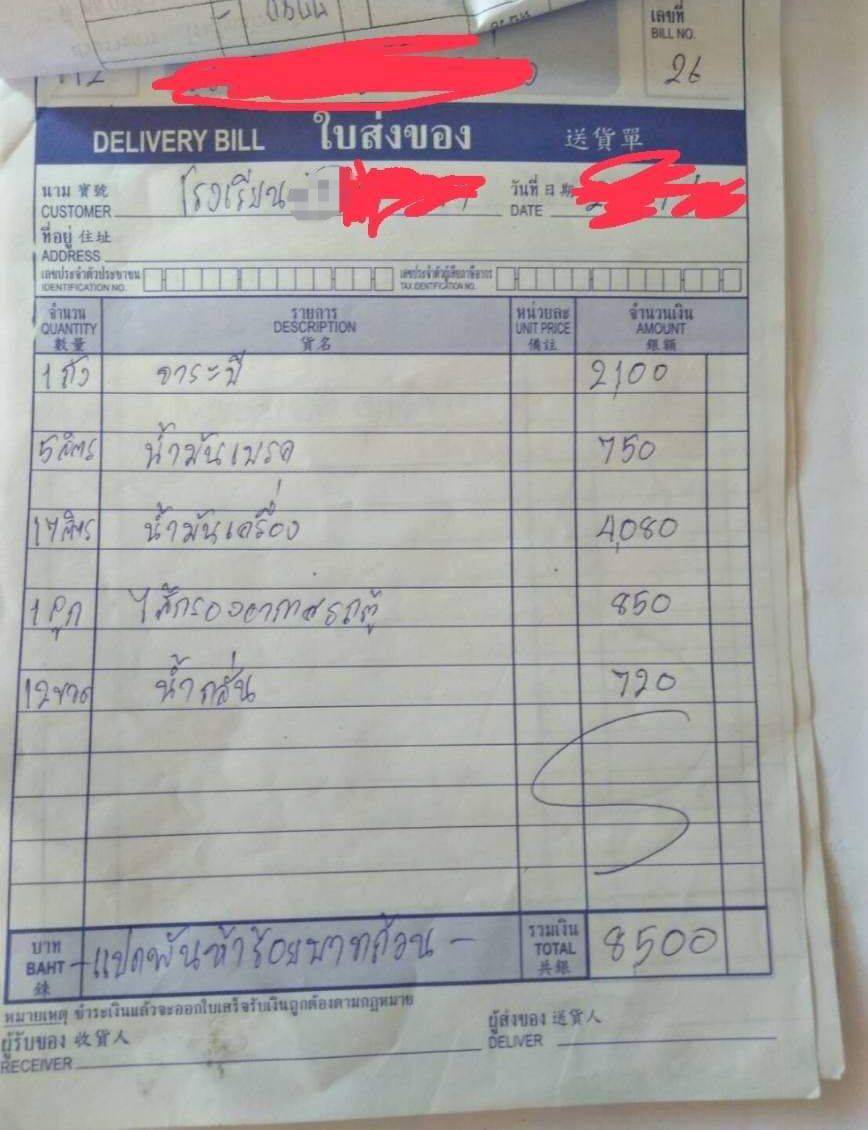 เลขที่
BILL NO.
26
DELIVERY BILL ใบส่งของ 送貨單
นาม 寶號 โรงเรียน วันที่ 日期
CUSTOMER DATE
ที่อยู่ 住址
ADDRESS
เลขประจำตัวประชาชน เลขประจำตัวผู้เสียภาษีอากร
IDENTIFICATION NO. TAX IDENTIFICATION NO.
จำนวน รายการ หน่วยละ จำนวนเงิน
QUANTITY DESCRIPTION UNIT PRICE AMOUNT
數量 貨名 備註 銀額
1 ถัง จาระบี 2,100
5 ลิตร น้ำมันเบรค 750
17 ลิตร น้ำมันเครื่อง 4,080
1 ลูก ไส้กรองอากาศรถตู้ 850
12 ขวด น้ำกลั่น 720
บาท รวมเงิน
BAHT - แปดพันห้าร้อยบาทถ้วน - TOTAL 8500
銖 共銀
หมายเหตุ ชำระเงินแล้วจะออกใบเสร็จรับเงินถูกต้องตามกฎหมาย
ผู้รับของ 收貨人 ผู้ส่งของ 送貨人
RECEIVER DELIVER